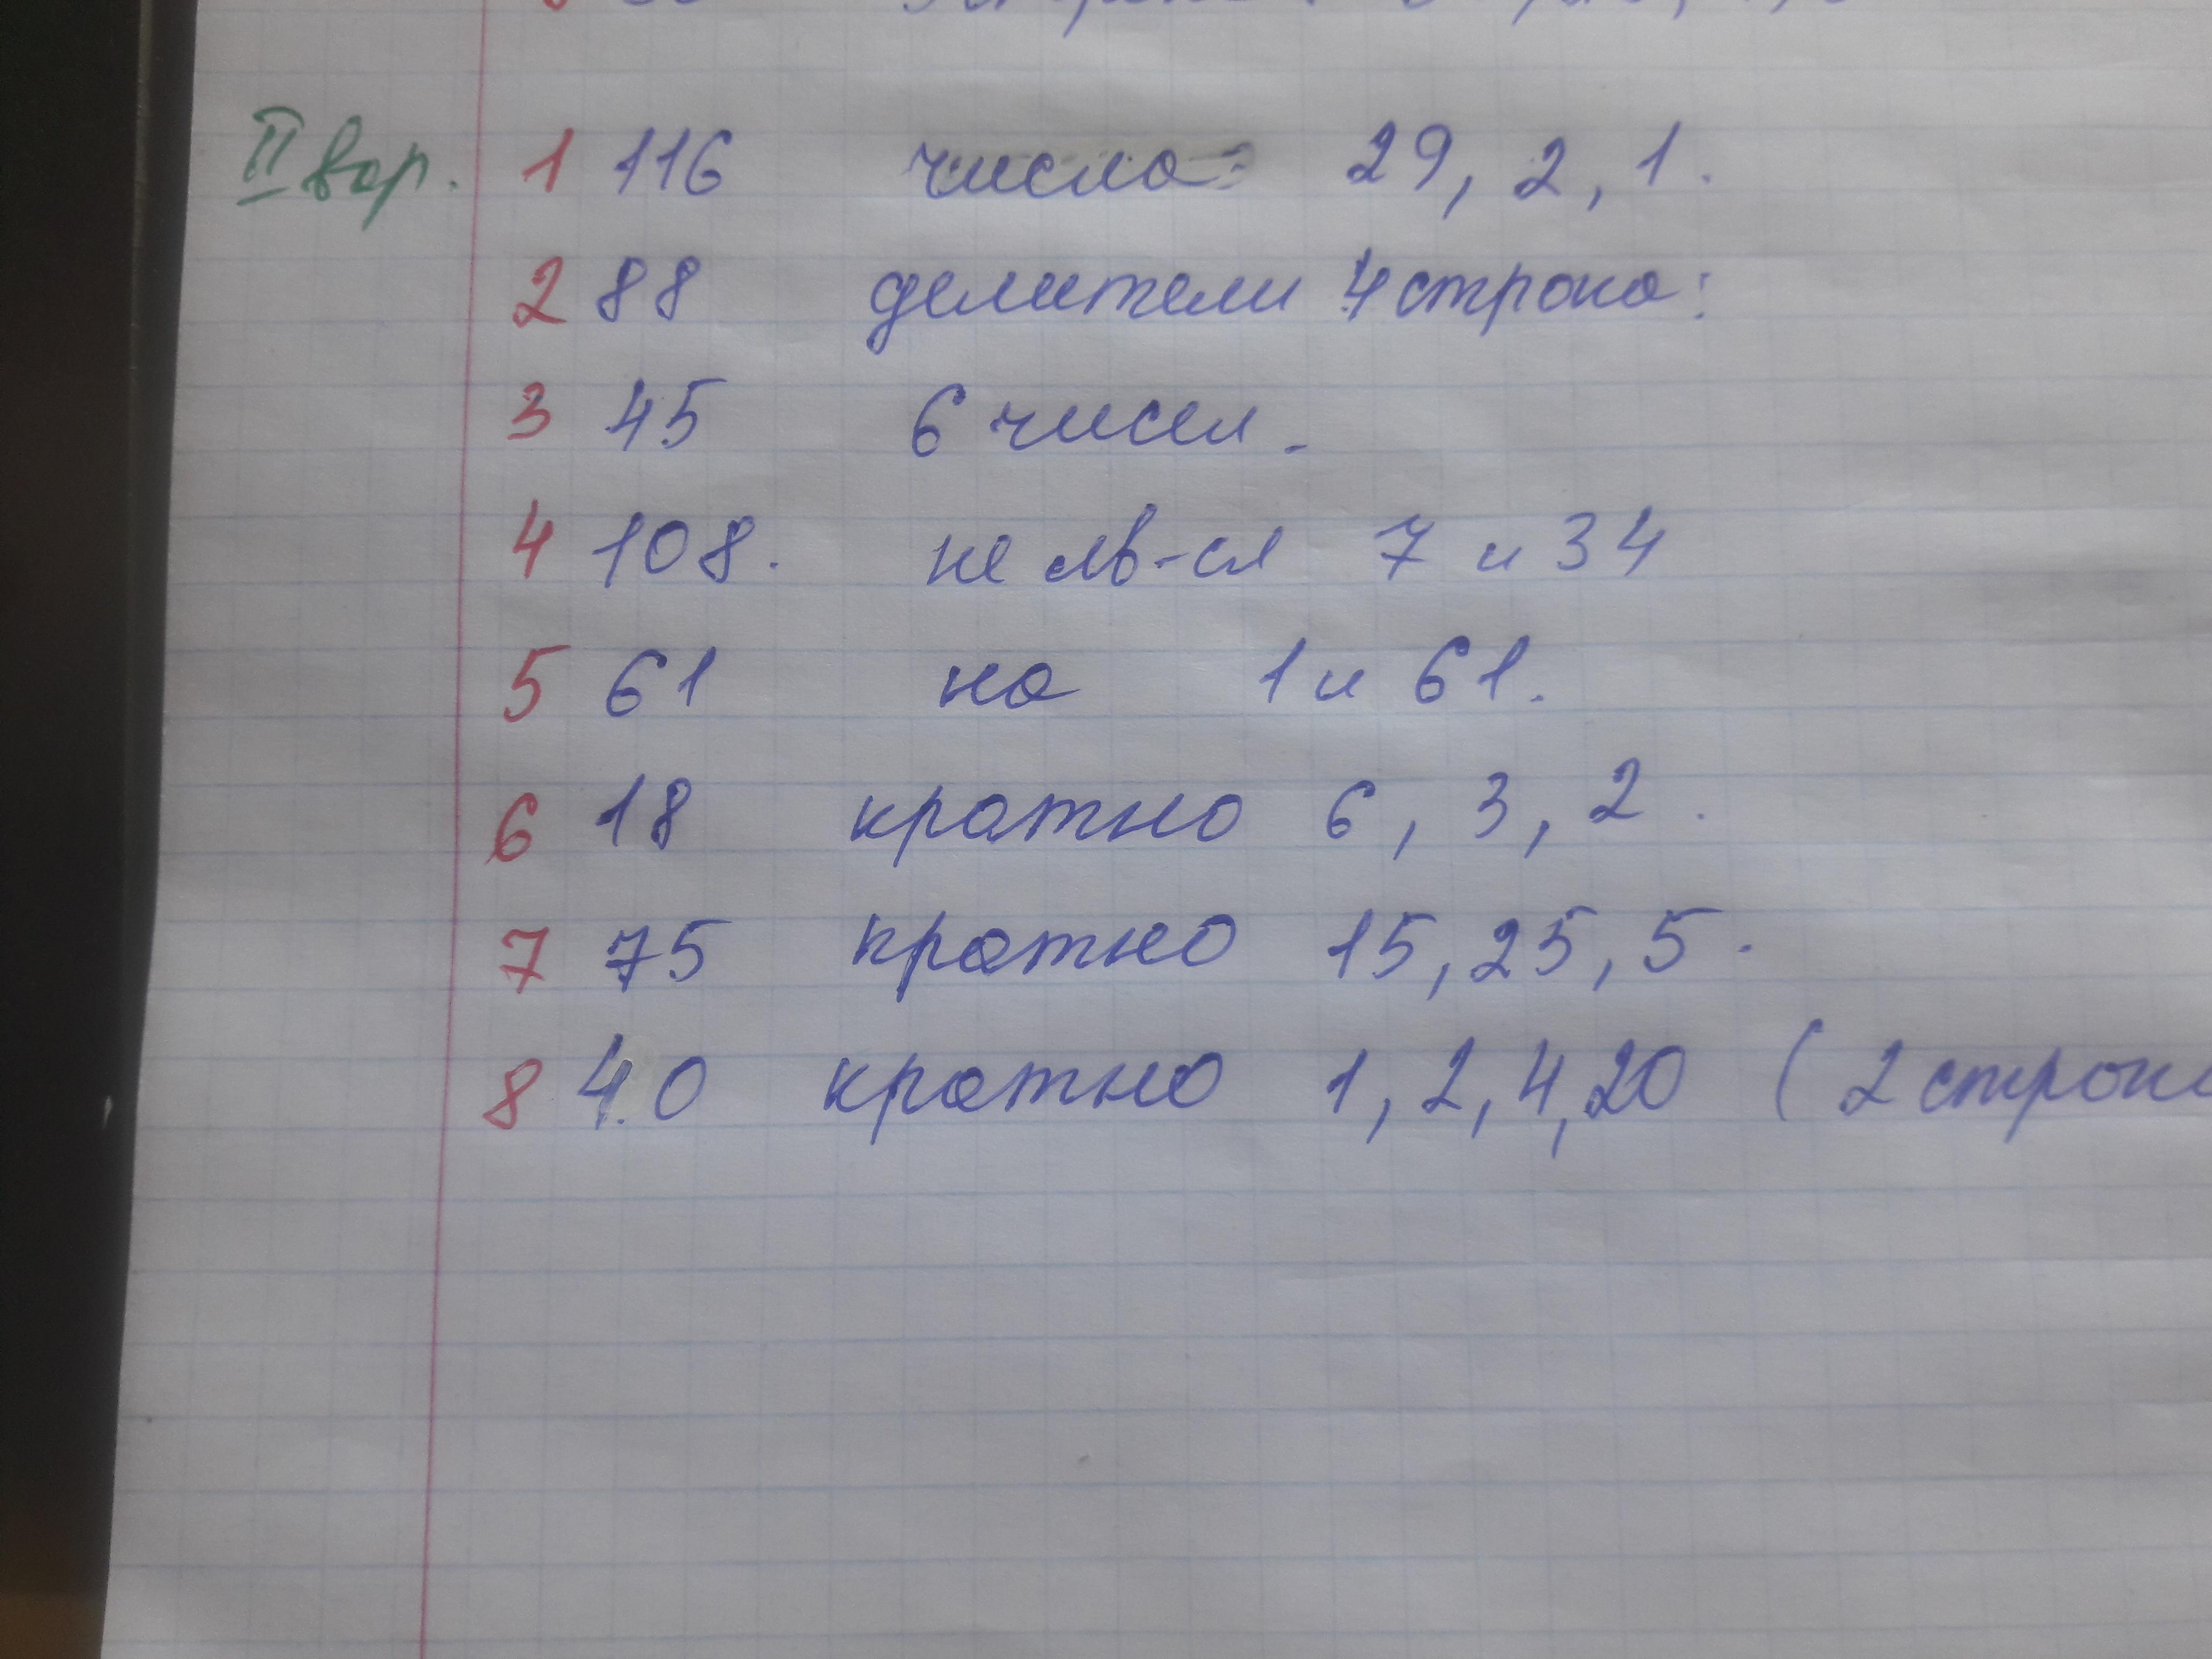 II вар. 1 116 числа: 29, 2, 1.
2 88 делители 4 строка:
3 45 6 чисел.
4 108. не яв-ся 7 и 34
5 61 на 1 и 61.
6 18 кратно 6, 3, 2.
7 75 кратно 15, 25, 5.
8 40 кратно 1, 2, 4, 20 ( 2 строка